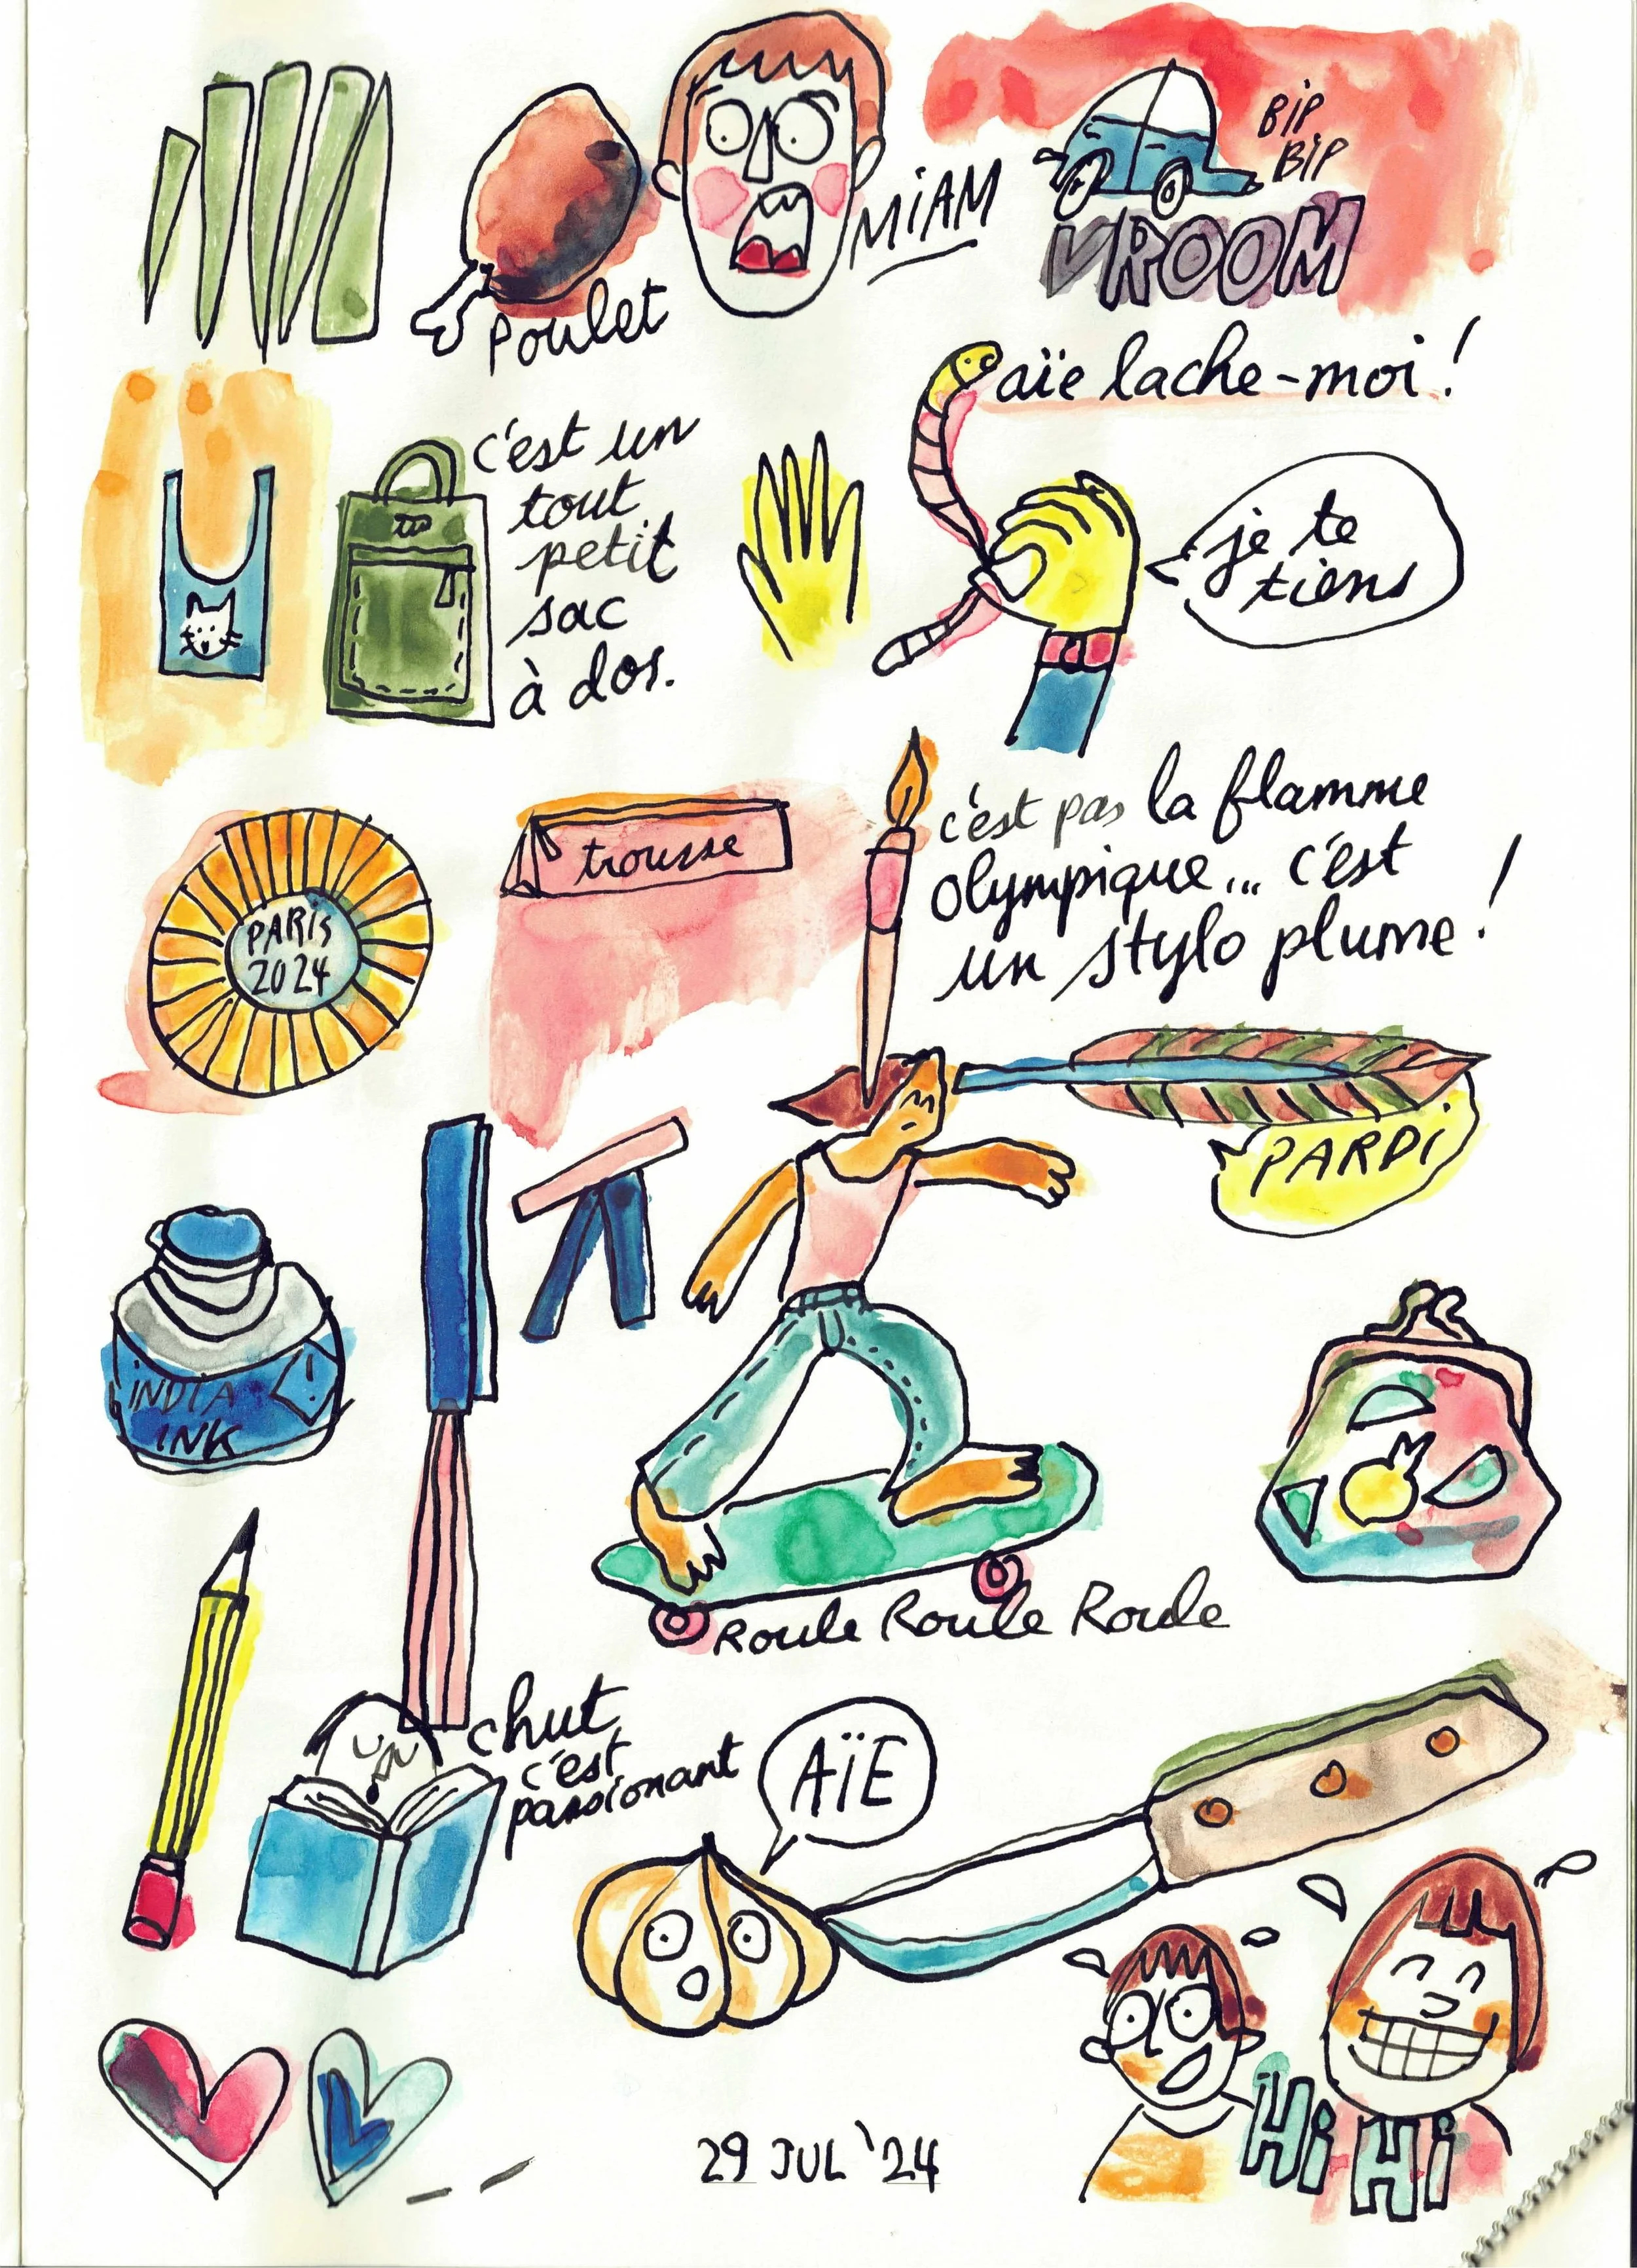 Poulet
MiAM
BiP
BiP
VROOM
aïe lache-moi !
c'est un
tout
petit
sac
à dos.
je te
tiens
PARiS
2024
trousse
c'est pas la flamme
olympique... c'est
un stylo plume !
PARDi
iNDiA
iNK
Roule Roule Roule
chut
c'est
passionant
AÏE
Hi Hi
29 JUL '24